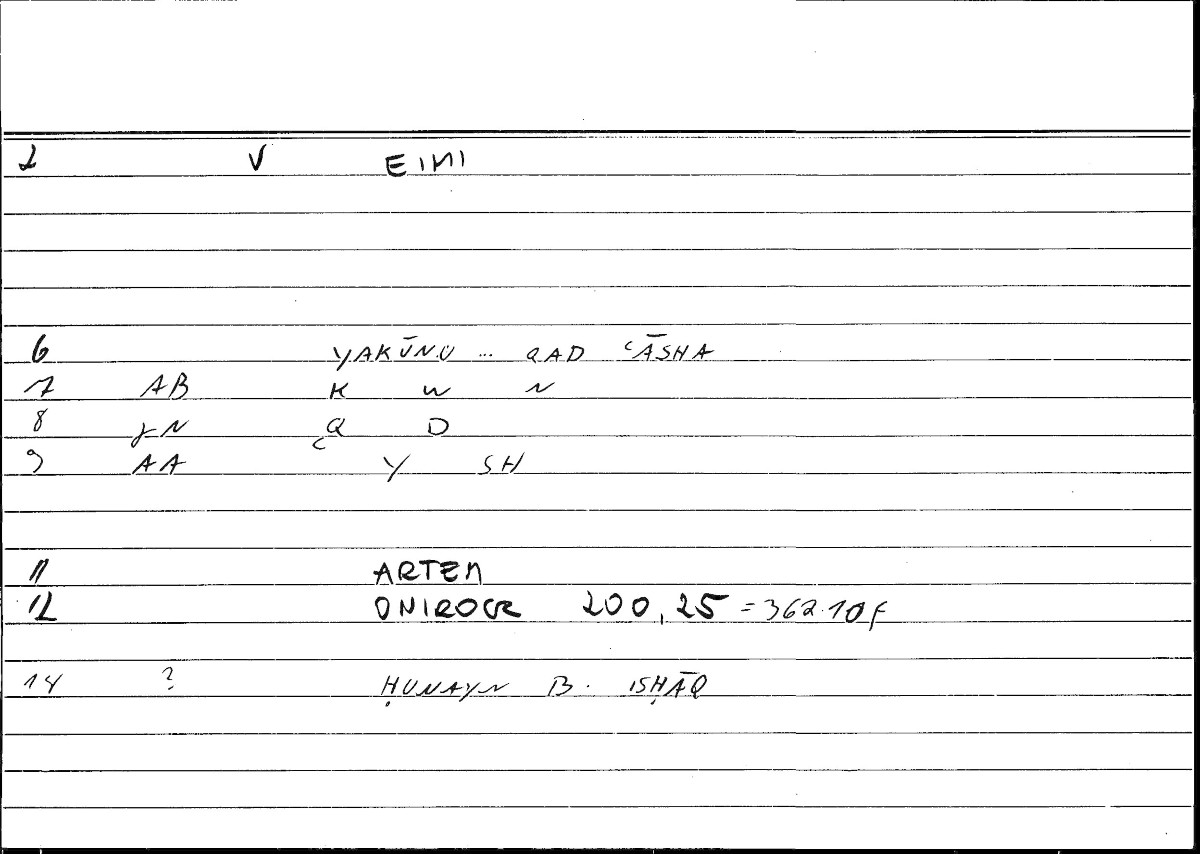 2 V EIMI
6 YAKŪNU ... QAD ʿĀSHA
7 AB K W N
8 γN Q D
9 AA ʿ Y SH
11 ARTEM
12 ONIROCR 200,25 = 362.10f
14 ? ḤUNAYN B. ISḤĀQ